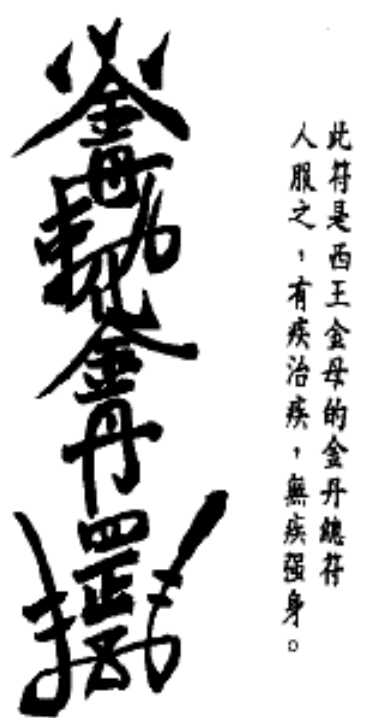 此符是西王金母的金丹總符
人服之，有疾治疾，無疾强身。
金母
金丹